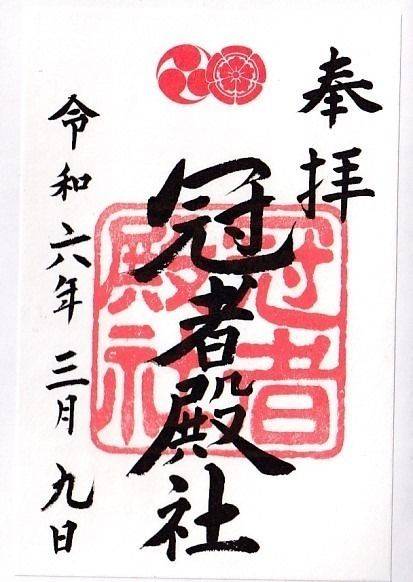 奉拝
冠者殿社
冠者殿社
令和六年三月九日